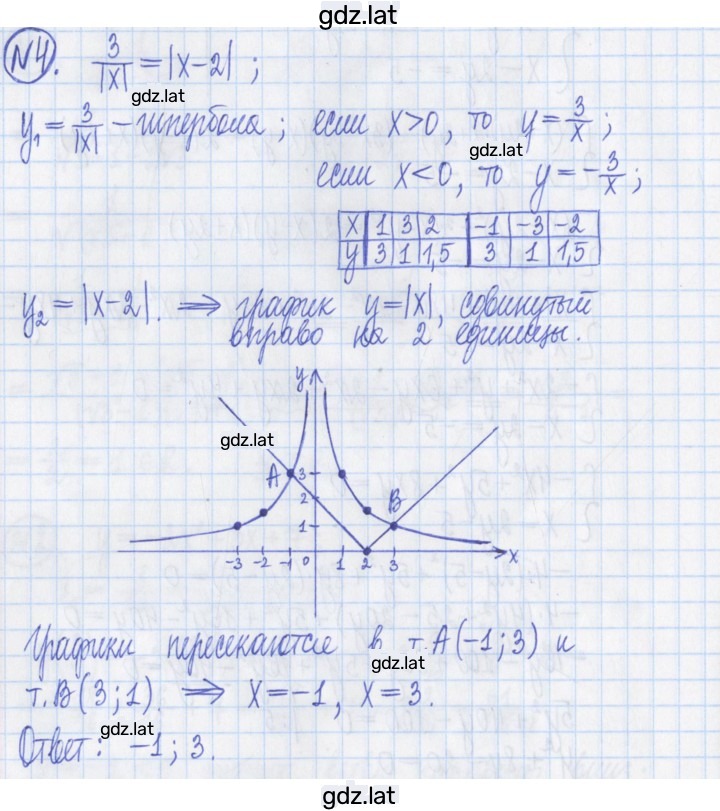 gdz.lat
№4. 3/|x| = |x-2| ;
gdz.lat
y₁ = 3/|x| - гипербола ; если x>0, то y = 3/x ;
gdz.lat
если x<0, то y = -3/x ;
x 1 3 2 -1 -3 -2
y 3 1 1,5 3 1 1,5
y₂ = |x-2|. ⟹ график y=|x|, сдвинутый
вправо на 2 единицы.
y
gdz.lat
A 3
2 B
1
-3 -2 -1 0 1 2 3 x
Графики пересекаются в т.А(-1;3) и
gdz.lat
т.В(3;1). ⟹ x=-1, x=3.
gdz.lat
Ответ: -1; 3.
gdz.lat